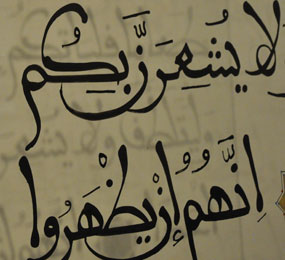 لَا يُشْعِرَنَّ بِكُمُ
اِنَّهُمُ إِنْ يَظْهَرُوا